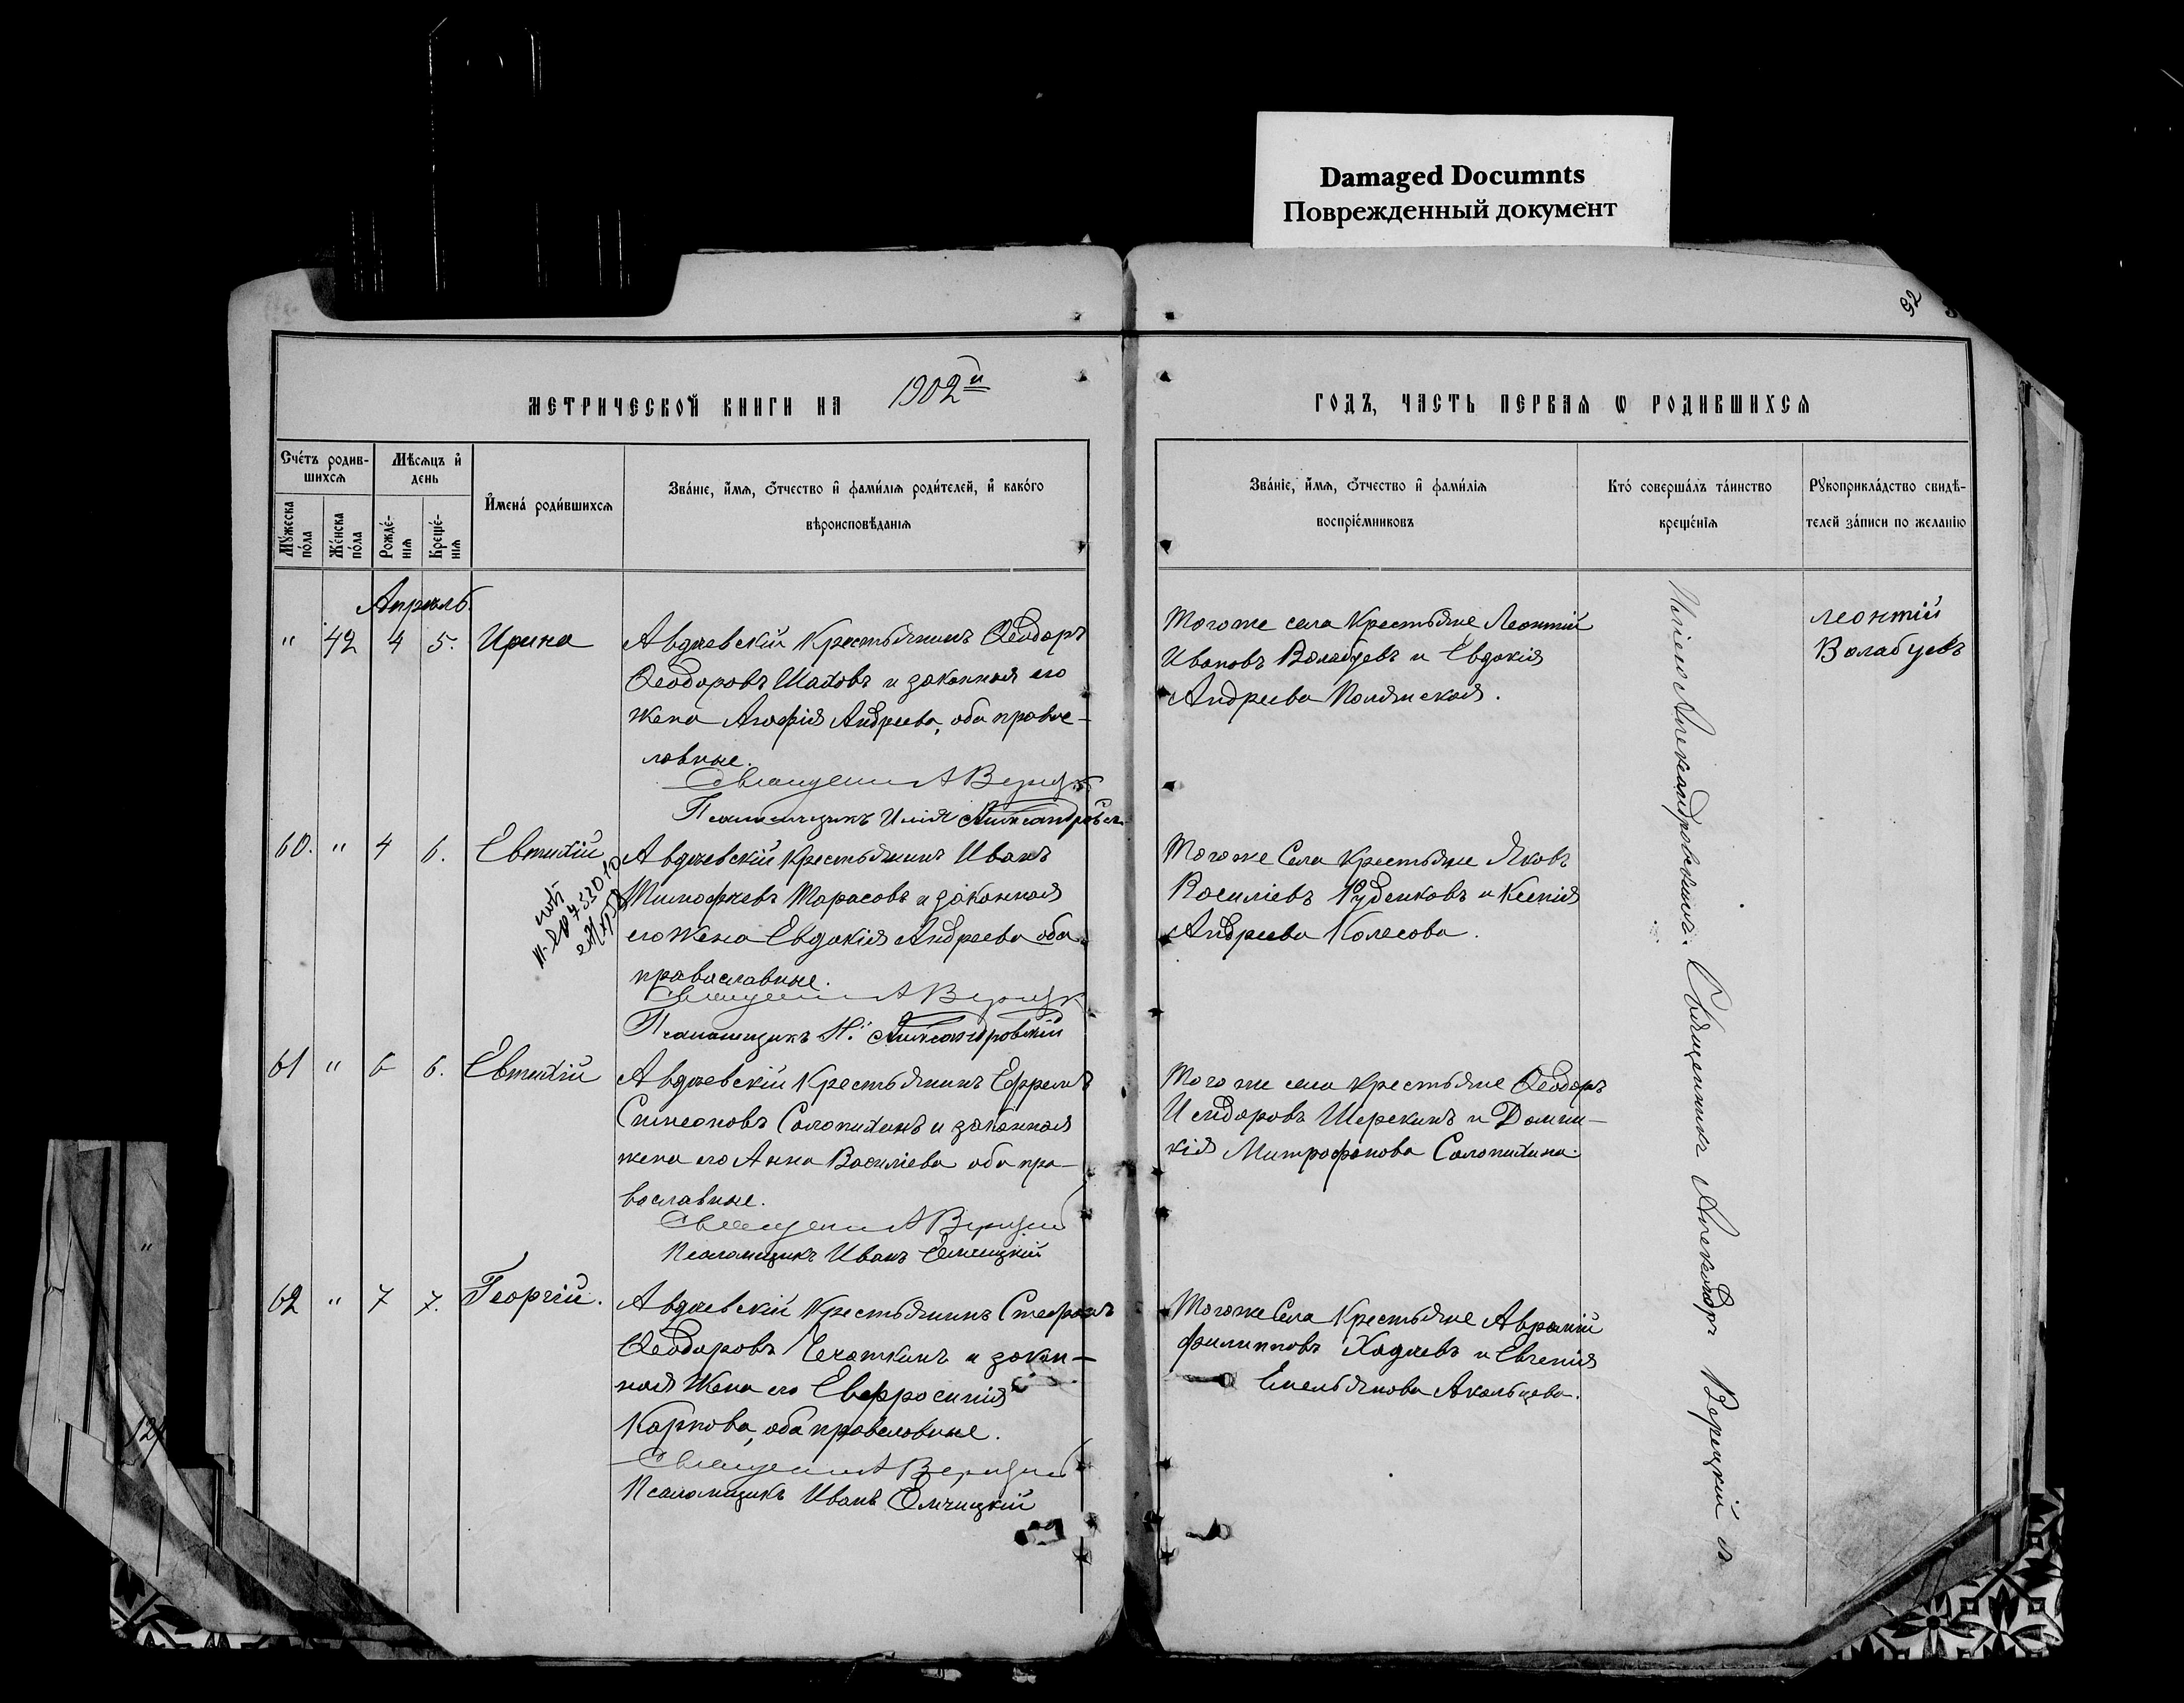 Damaged Documnts
Поврежденный документ
92
МЕТРИЧЕСКОЙ КНИГИ НА 1902й ГОДЪ, ЧАСТЬ ПЕРВАЯ Ѡ РОДИВШИХСЯ
Счéтъ родив-
шихсѧ
Мѣсѧцъ и҆
день
Мꙋ́жеска
по́ла
Же́нска
по́ла
Рожде́-
нїѧ
Креще́-
нїѧ
И҆мена̀ роди́вшихсѧ
Зва́нїе, и҆́мѧ, ѻ҆́тчество и҆ фами́лїѧ роди́телей, и҆ како́го
вѣроисповѣ́данїѧ
Зва́нїе, и҆́мѧ, ѻ҆́тчество и҆ фами́лїѧ
воспрїе́мниковъ
Кто̀ соверша́лъ та́инство
креще́нїѧ
Рꙋкоприкла́дство свидѣ́-
телей за́писи по жела́нїю
Апрѣль
" 42 4 5. Ирина
Авдѣевскій Крестьянинъ Ѳеодоръ
Ѳеодоровъ Шаховъ и законная его
жена Агафія Андреева, оба правос-
лавные.
Священни А Верицк
Псаломщикъ Илія Александровск
Тогоже села Крестьяне Леонтій
Ивановъ Валабуевъ и Евдокія
Андреева Полянская.
Леонтій
Валабуевъ
60. " 4 6. Евтихій
Авдѣевскій Крестьянинъ Иванъ
Тимофѣевъ Тарасовъ и законная
его жена Евдокія Андреева оба
православные.
Священни А Верицк
Псаломщикъ И. Александровскій
Тогоже Села Крестьяне Яковъ
Василіевъ Руденковъ и Ксенія
Андреева Колесова.
61 " 6 6. Евтихій
Авдѣевскій Крестьянинъ Ефремъ
Симеоновъ Солопихинъ и законная
жена его Анна Василіева оба пра-
вославные.
Священни А Верицкій
Псаломщикъ Иванъ Емчицкій
Тогоже села крестьяне Ѳеодоръ
Исидоровъ Шерекинъ и Домни-
кія Митрофанова Солопихина.
62 " 7 7. Георгій.
Авдѣевскій Крестьянинъ Стефанъ
Ѳеодоровъ Чекаткинъ и закон-
ная жена его Евфросинія
Карпова, оба православные.
Священни А Верицкій
Псаломщикъ Иванъ Емчицкій
Тогоже Села Крестьяне Аврамій
Филипповъ Хадѣевъ и Евгенія
Емельянова Акальцева.
Священникъ Александръ Верицкій съ
Александровскимъ.